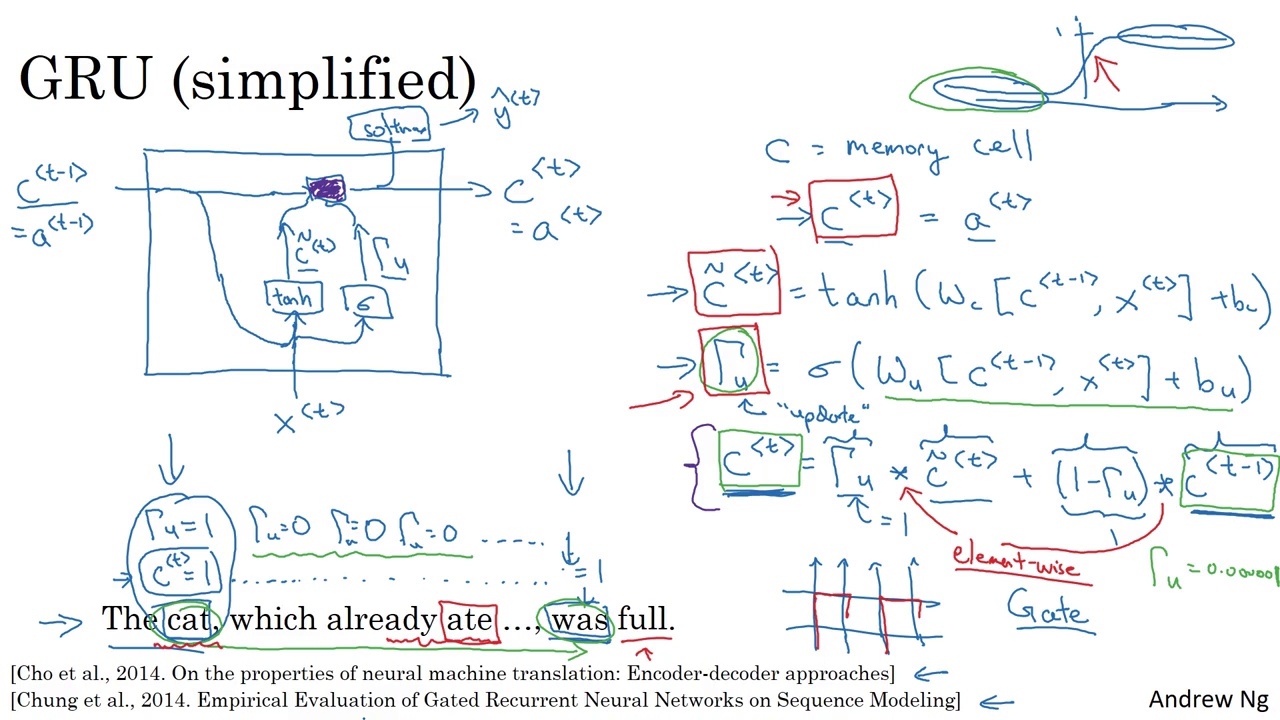 GRU (simplified)
softmax
ŷ<t>
c<t-1>
= a<t-1>
c<t>
= a<t>
c̃<t>
Γu
tanh
σ
x<t>
1
c = memory cell
c<t> = a<t>
c̃<t> = tanh (Wc [c<t-1>, x<t>] + bc)
Γu = σ (Wu [c<t-1>, x<t>] + bu)
"update"
c<t> = Γu * c̃<t> + (1-Γu) * c<t-1>
= 1
1
element-wise
Γu = 0.000001
Gate
Γu = 1 Γu = 0 Γu = 0 Γu = 0 .....
c<t> = 1 ............ = 1
The cat, which already ate ..., was full.
[Cho et al., 2014. On the properties of neural machine translation: Encoder-decoder approaches]
[Chung et al., 2014. Empirical Evaluation of Gated Recurrent Neural Networks on Sequence Modeling]
Andrew Ng